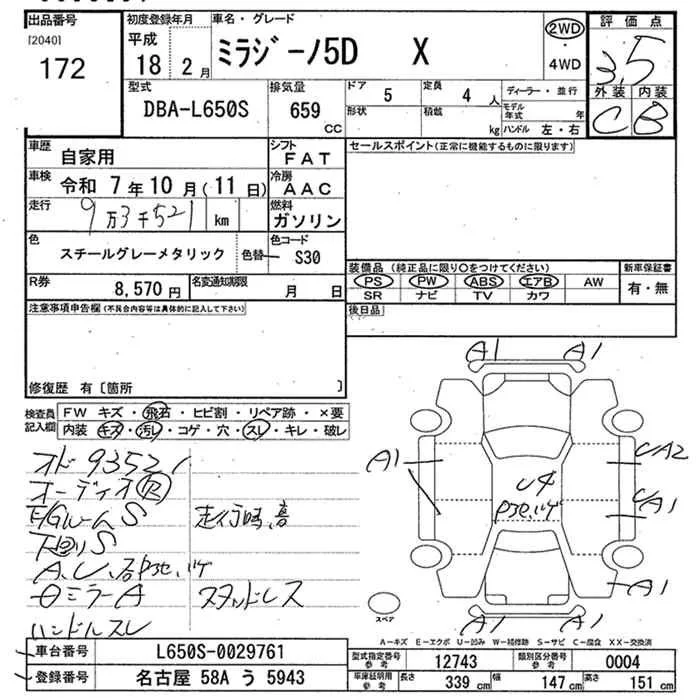 出品番号 初度登録年月 車名・グレード 評価点
[2040] 平成 2WD
172 18 2月 ミラジーノ5D X ・ 3.5
4WD
型式 排気量 ドア 5 定員 4 人 ディーラー・並行 外装 内装
DBA-L650S 659 形状 積載 モデル年式 年 C B
CC kg ハンドル 左・右
車歴 自家用 シフト FAT セールスポイント(正常に機能するものに限ります)
車検 令和 7年 10月(11日) 冷房 AAC
走行 9万3千521 km 燃料 ガソリン
色 スチールグレーメタリック 色替 色コード S30
装備品 (純正品に限り○をつけてください) 新車保証書
R券 8,570円 名変通知期限 月 日 PS PW ABS エアB AW 有・無
SR ナビ TV カワ
注意事項申告欄(不具合内容等は具体的に記入して下さい) 後日品
修復歴 有〔箇所 〕
検査員記入欄 FW キズ・飛石・ヒビ割・リペア跡・×要
内装 キズ・汚レ・コゲ・穴・スレ・キレ・破レ
A1 A1
A1 UA2
オド93521 Uダ
オーディオ欠 UA1
E/GルームS 走行時、音
下廻りS
A1
ミラーA スタッドレス
ハンドルスレ A1 A1
スペア
A-キズ E-エクボ U-凹み W-補修跡 S-サビ C-腐食 XX-交換済
車台番号 L650S-0029761 型式指定番号 参考 12743 類別区分番号 参考 0004
登録番号 名古屋 58A う 5943 車庫証明用 参考 長さ 339 cm 幅 147 cm 高さ 151 cm